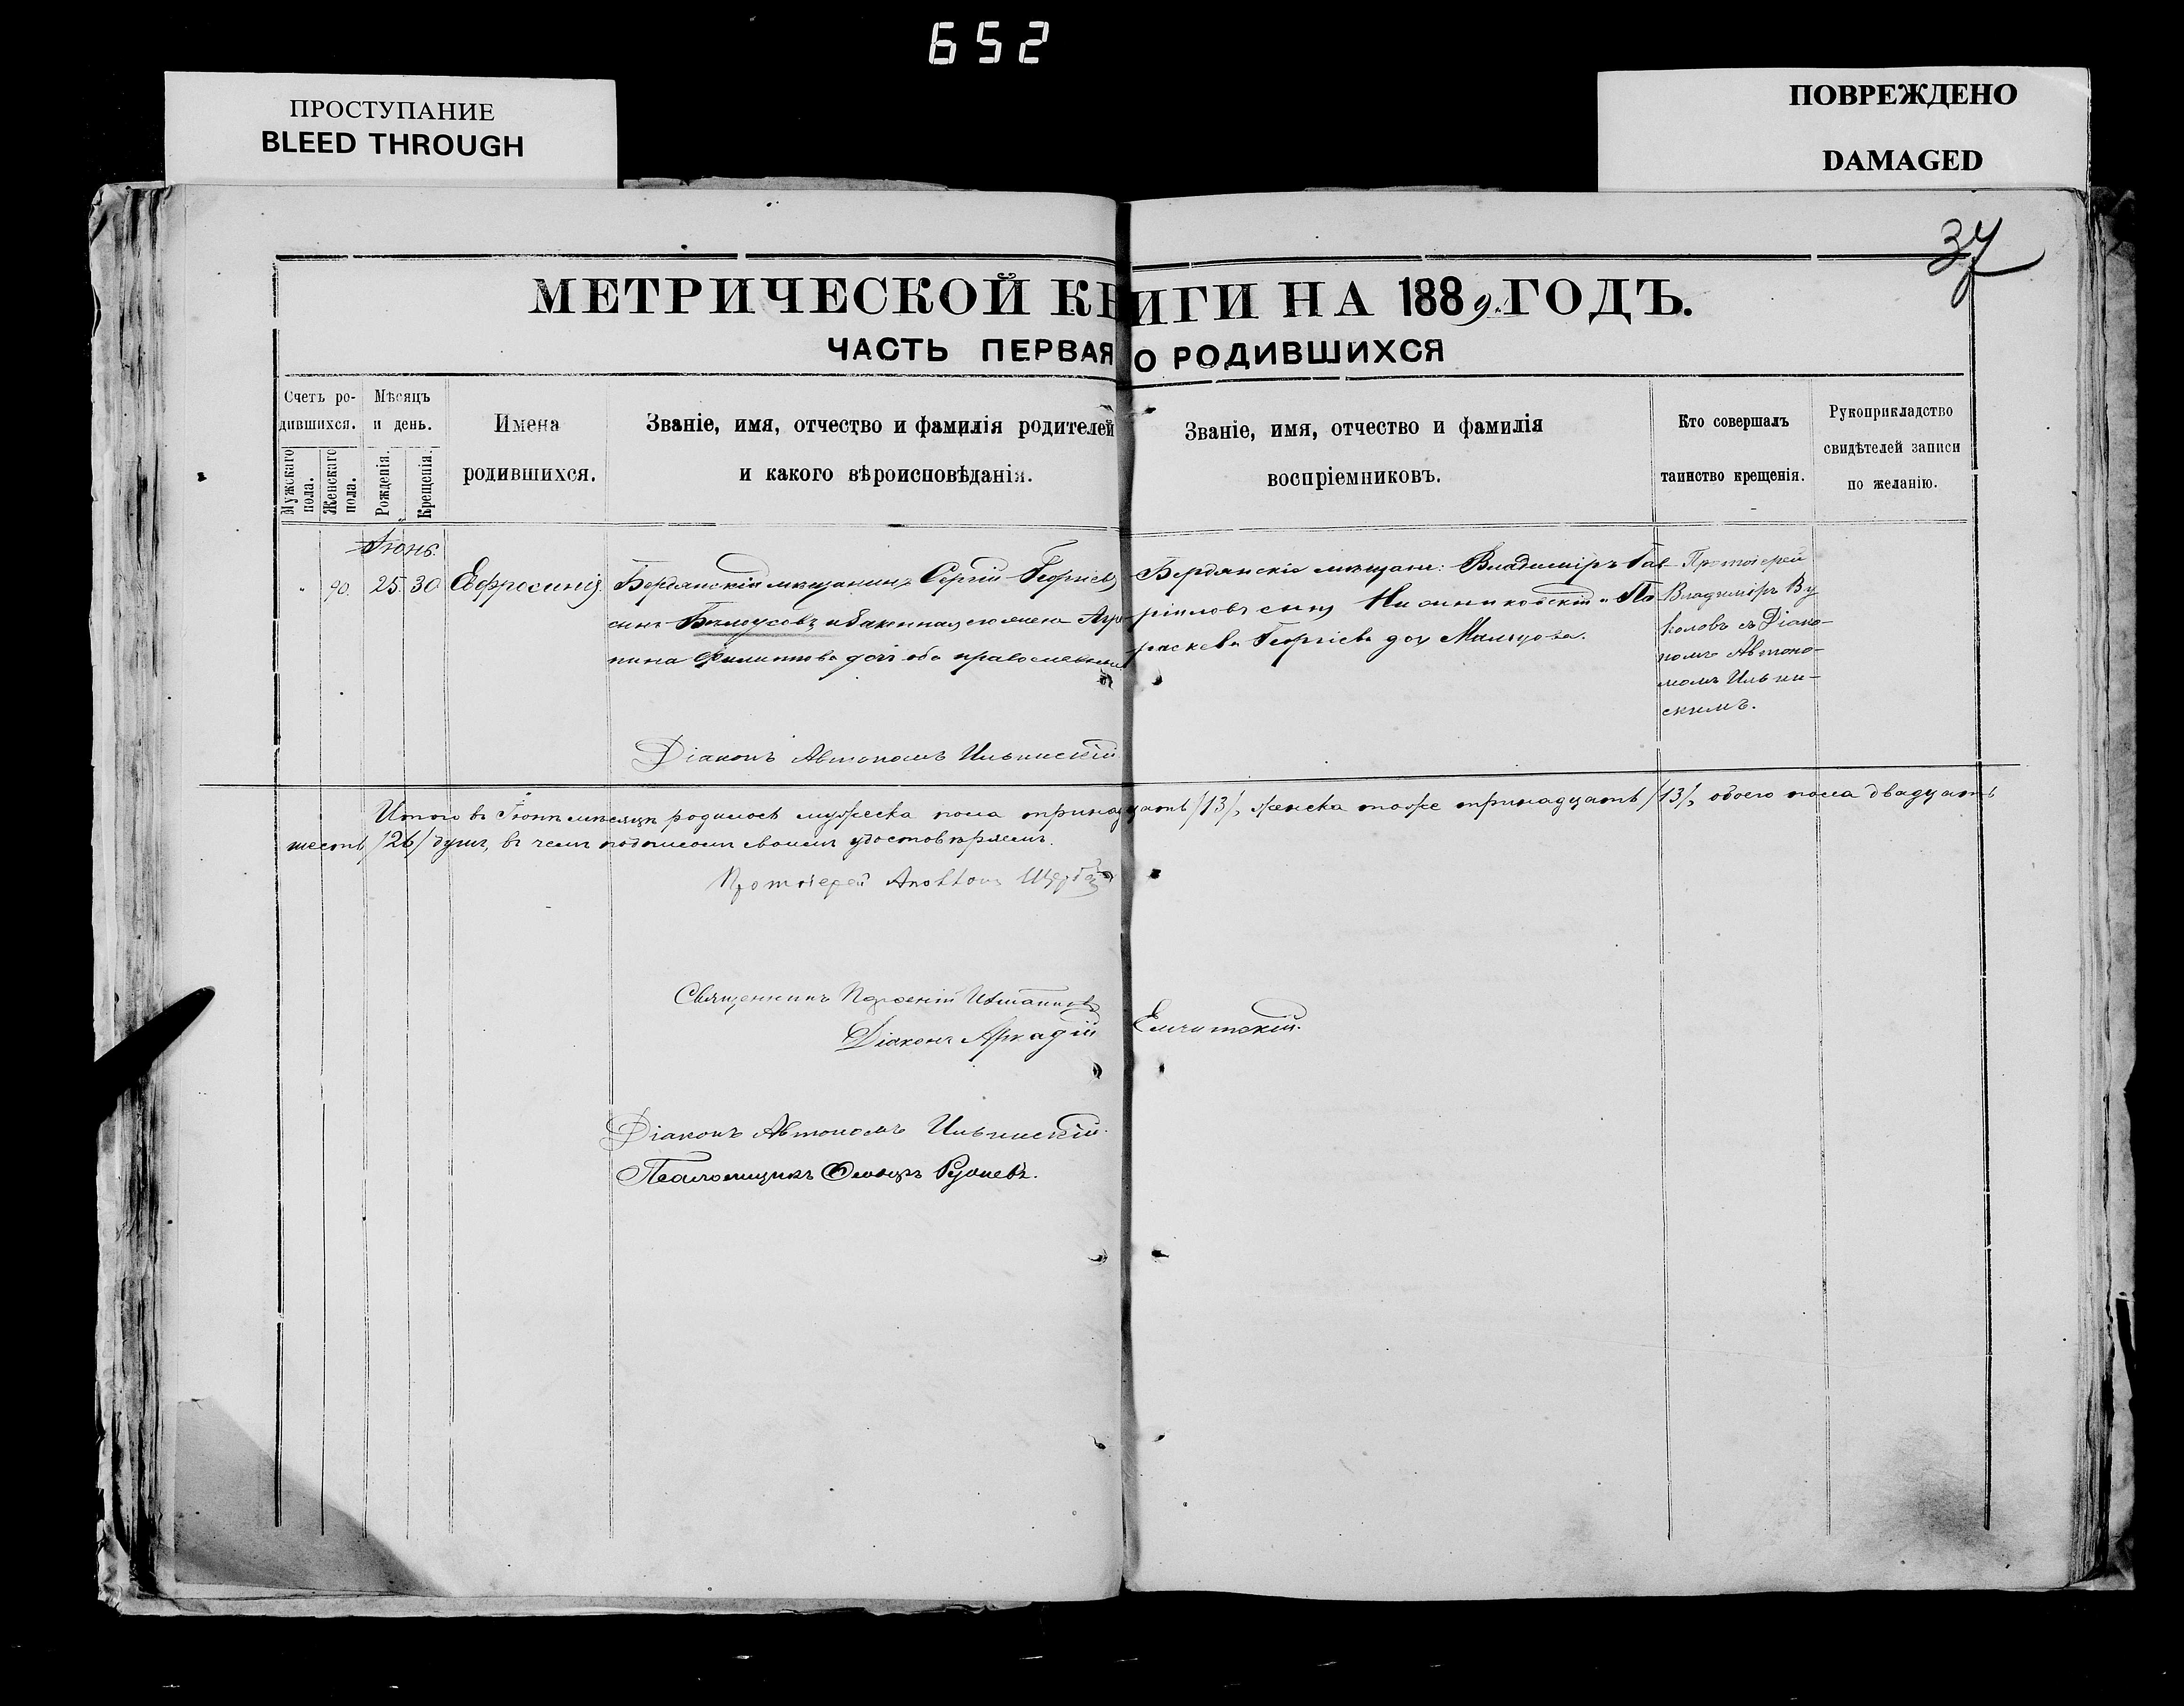 652
ПРОСТУПАНИЕ
BLEED THROUGH
ПОВРЕЖДЕНО
DAMAGED
37
МЕТРИЧЕСКОЙ КНИГИ НА 1889 ГОДЪ.
ЧАСТЬ ПЕРВАЯ О РОДИВШИХСЯ
Счетъ ро-
дившихся.
Мужскаго пола.
Женскаго пола.
Мѣсяцъ
и день.
Рожденія.
Крещенія.
Имена
родившихся.
Званіе, имя, отчество и фамилія родителей
и какого вѣроисповѣданія.
Званіе, имя, отчество и фамилія
воспріемниковъ.
Кто совершалъ
таинство крещенія.
Рукоприкладство
свидѣтелей записи
по желанію.
Іюнь.
90. 25. 30 Евфросинія.
Бердянскій мѣщанинъ Сергій Георгіевъ
сынъ Бѣлоусовъ и законная его жена Агри-
пина Филиппова дочь оба православные
Бердянскіе мѣщане: Владиміръ Гав-
ріиловъ сынъ и Па-
раскева Георгіева доч Мальцова.
Протоіерей
Владиміръ Ву
коловъ съ Діако-
номъ Автоно-
момъ Ильин-
скимъ.
Діаконъ Автономъ Ильинскій
Итого въ Іюнѣ мѣсяцѣ родилось мужеска пола тринадцать /13/, женска тоже тринадцать /13/, обоего пола двадцать
шесть /26/ душъ, въ чемъ подписомъ своимъ удостовѣряемъ.
Протоіерей
Священникъ
Діаконъ Аркадій
Діаконъ Автономъ Ильинскій.
Псаломщикъ